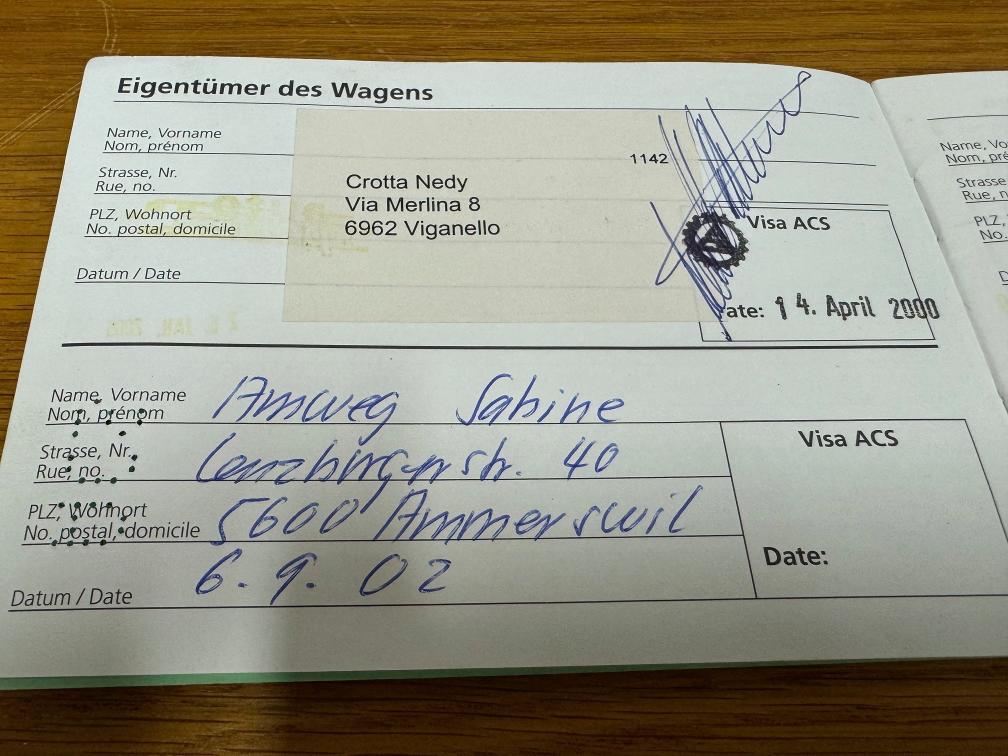 Eigentümer des Wagens
Name, Vorname
Nom, prénom
1142
Strasse, Nr.
Rue, no.
Crotta Nedy
Via Merlina 8
6962 Viganello
PLZ, Wohnort
No. postal, domicile
Visa ACS
Datum / Date
ate: 14. April 2000
Name, Vorname
Nom, prénom
Amweg Sabine
Strasse, Nr.
Rue, no.
Lenzburgerstr. 40
PLZ, Wohnort
No. postal, domicile
5600 Ammerswil
Datum / Date
6. 9. 02
Visa ACS
Date:
Name, Vo
Nom, pré
Strasse
Rue, n
PLZ,
No.
D